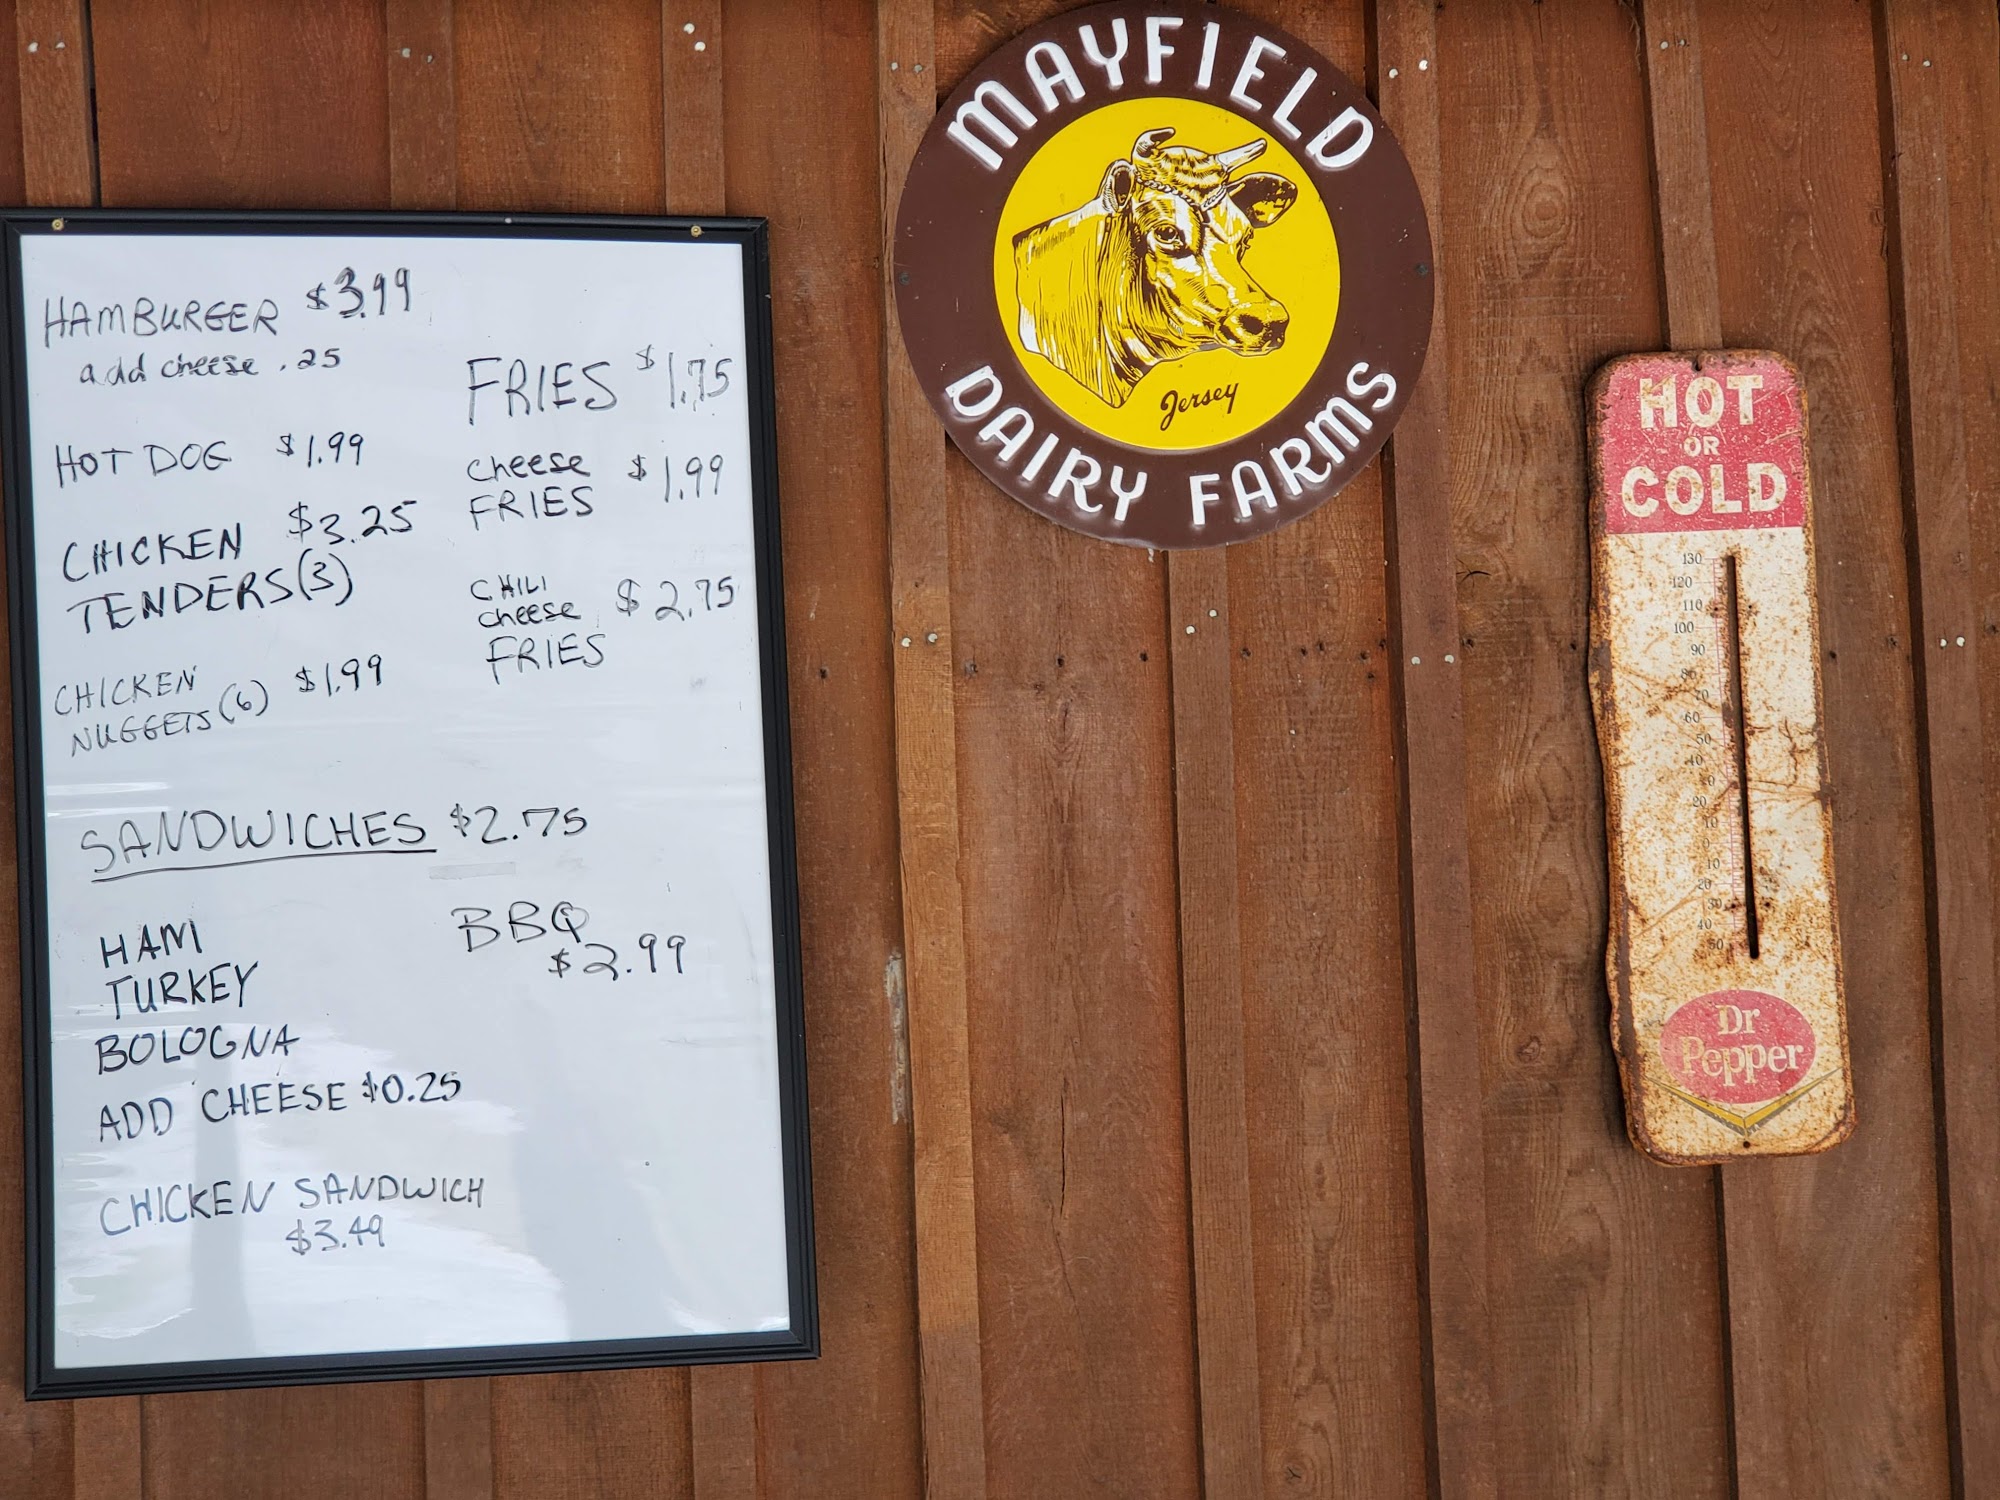 HAMBURGER $3.99
add cheese .25
HOT DOG $1.99
CHICKEN $3.25
TENDERS (3)
CHICKEN $1.99
NUGGETS (6)
FRIES $1.75
cheese $1.99
FRIES
CHILI
cheese $2.75
FRIES
SANDWICHES $2.75
HAM
TURKEY
BOLOGNA
ADD CHEESE $0.25
BBQ
$2.99
CHICKEN SANDWICH
$3.49
MAYFIELD
Jersey
DAIRY FARMS
HOT
OR
COLD
130
120
110
100
90
80
70
60
50
40
20
10
0
10
20
30
40
50
Dr
Pepper